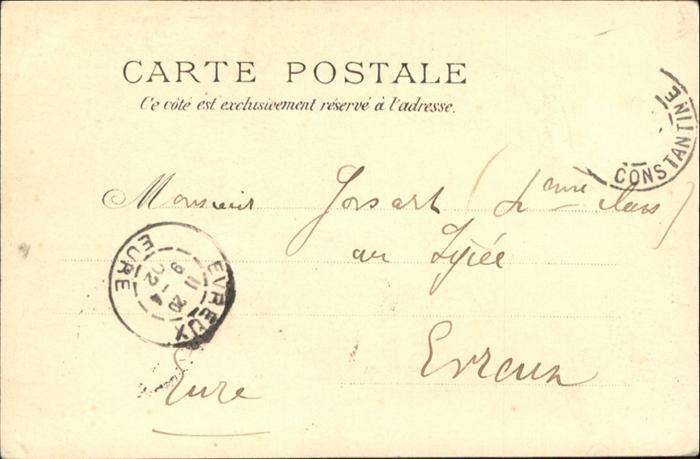 CARTE POSTALE
Ce côté est exclusivement réservé à l'adresse.
CONSTANTINE
Monsieur Jossart (4eme class)
au Lycée
EVREUX
EURE
Evreux
Eure